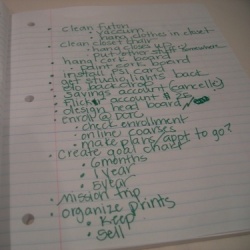 • clean futon
• vaccum
• hang clothes in closet
clean closet
• hang clothes up
• put other stuff somewhere
• hang cork board
• paint cork board
• install
• get studio lights back
• DIY backdrop
• savings account (cancelled)
• Flickr account $25
• design head board
• enroll @ DCTC
• check enrollment
• online courses
• make plans/appt to go?
• create goal chart
• 6 months
• 1 year
• 5 year
• mission trip
• organize prints
• keep
• sell